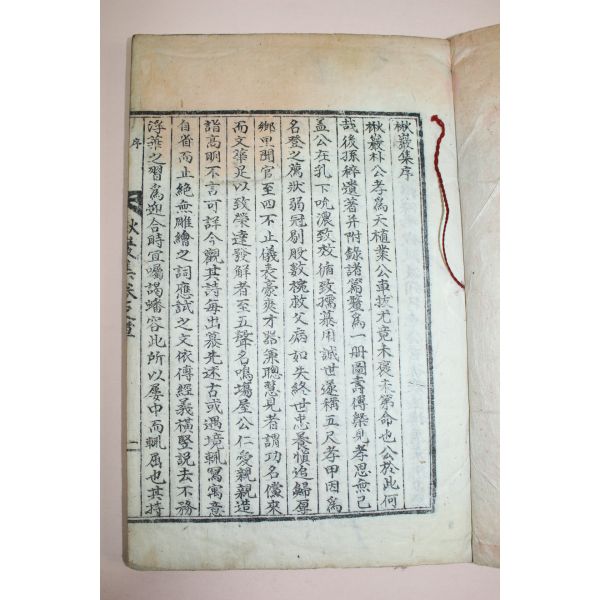 楸巖集序
楸巖朴公孝爲天植業公車抜尤竟未褒未第命也公於此何
哉後孫稡遺著幷附錄諸篇釐爲一冊圖壽傳槩見孝思無已
盖公在乳下吮濃致 致孺慕用誠世遂稱五尺孝甲因爲
名登之薦狀弱冠剔股數椀救父病如失終世忠養愼追歸厚
鄕里聞官至四不止儀表豪爽才器兼聰慧見者謂功名儻來
而文華足以致榮達發解者至五聲名鳴場屋公仁愛親親造
詣高明不言可詳今觀其詩每出慕先述古或遇境輒寫寓意
自省而止絶無雕繪之詞應試之文依傳經義橫竪説去不務
浮華之習爲迎合時宜囑謁蟠容此所以屢中而輒屈也其持
序
楸巖集卷之壹
一